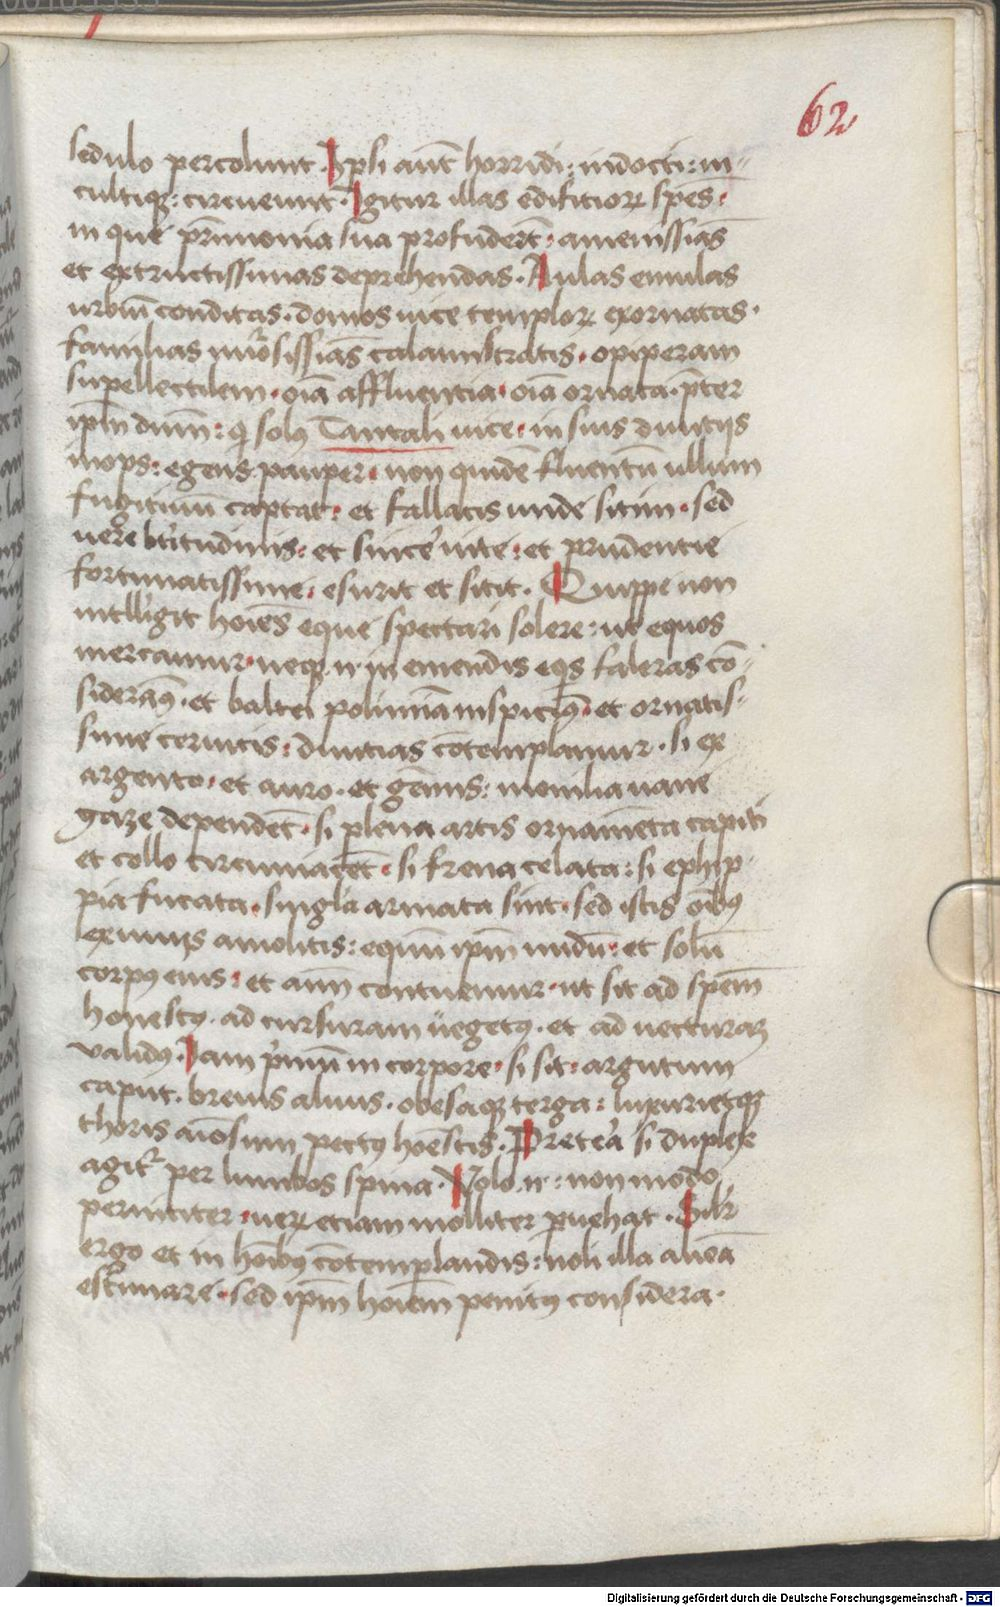 62
sedulo percolunt. Ipsi aut̄ horridi: indocti: in-
cultiq;: circueunt. Igitur illas edifitioꝝ spēs.
in que pr̄imonia sua profuderēt. amenissiās
et extructissimas deprehendas. Aulas emulas
urbiū conditas. domos uice temploꝝ exornatas.
familias nūosissiās calamistratis. opiperam
suppellectilem. oīa affluentia. oīa ornata. p̄ter
ip̄m dnm̄: q̇ solꝰ Tantali uice. in suis diuitijs
inops: egens pauper. non quidē fluentū ullum
fugitiuū captat: et fallacis unde sitim. sed
uere btītudinis: et sincē uite: et prudentie
fortunatissime. esurit et sitit. Quippe non
intlligit hoīēs eque spectari solere: ut equos
mercamur. neq; n. in emendis eqs faleras cō-
siderāꝰ. et baltei polimina inspiciꝰ. et ornatis-
sime ceruicis: diuitias cōtemplamur. si ex
argento. et auro. et gēmis: monilia uarie
gaze dependēt. si plena artis ornamēta capiti
et collo circumiacēt. si frena celata: si ephip-
pia fucata. singla armata sint. sed istis oībꝰ
exuuijs amolitis: equū ipm̄ nudū: et solū
corpꝰ eius: et aīm contuemur. ut sit ad spēm
honestꝰ. ad cursuram uegetꝰ. et ad uecturaꝫ
validꝰ. Iam p̄imū in corpore. si sit: argutum
caput. breuis aluus. obesaq; terga: luxurietq;
thoris aīosum pectꝰ hoēstis. Preteā si duplex
agit̃ per lumbos spina. Volo. n.: non modo
perniciter. ueꝝ etiam molliter puehat. Silr
ergo et in hoībꝰ cōtemplandis: noli illa aliēā
estimare. sed ip̄m hoīem penitꝰ considera.
Digitalisierung gefördert durch die Deutsche Forschungsgemeinschaft - DFG